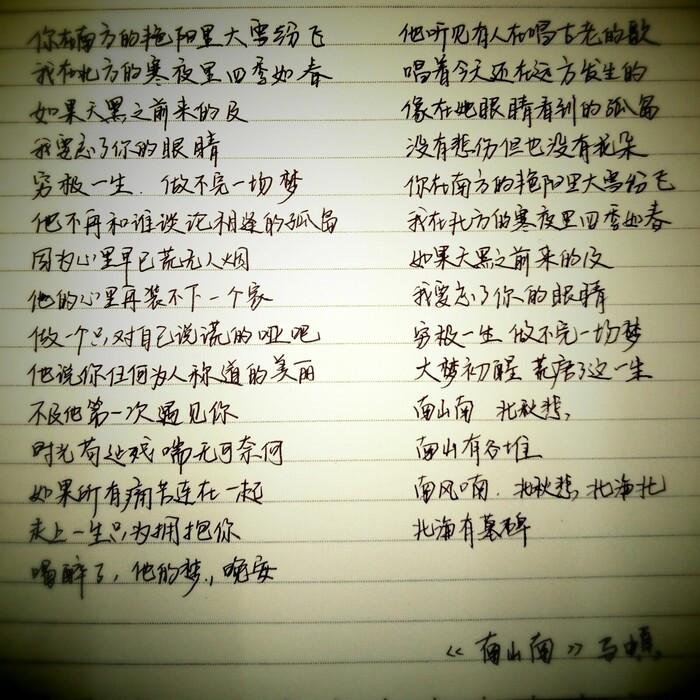 你在南方的艳阳里大雪纷飞
我在北方的寒夜里四季如春
如果天黑之前来的及
我要忘了你的眼睛
穷极一生.做不完一场梦
他不再和谁谈论相逢的孤岛
因为心里早已荒无人烟
他的心里再装不下一个家
做一个只对自己说谎的哑吧
他说你任何为人称道的美丽
不及他第一次遇见你
时光苟延残喘无可奈何
如果所有痛苦连在一起
走上一生只为拥抱你
喝醉了,他的梦.,晚安
他听见有人在唱古老的歌
唱着今天还在远方发生的
像在她眼睛看到的孤岛
没有悲伤但也没有花朵
你在南方的艳阳里大雪纷飞
我在北方的寒夜里四季如春
如果天黑之前来的及
我要忘了你的眼睛
穷极一生 做不完一场梦
大梦初醒 荒唐了这一生
南山南 北秋悲,
南山有谷堆
南风喃.北秋悲,北海北
北海有墓碑
《南山南》马頔.